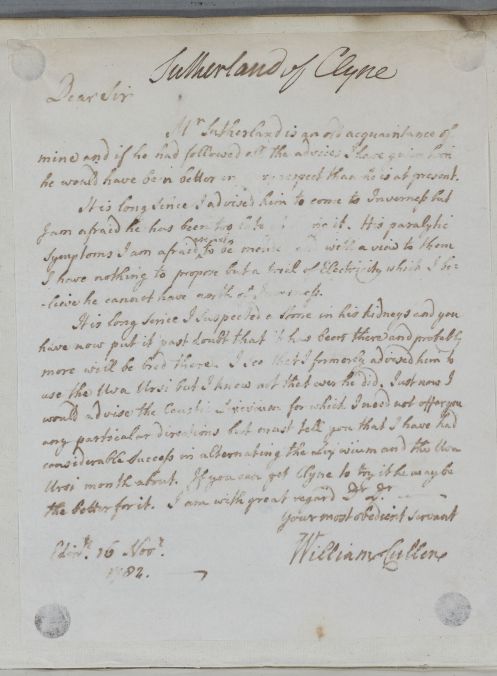 Sutherland of Clyne
Dear Sir
Mr Sutherland is an old acquaintance of
mine and if he had followed all the advices I have given him
he would have been better in respect than he is at present.
It is long since I advised him to come to Inverness but
I am afraid he has been too late it. His paralytic
symptoms I am afraid to be and with a view to them
I have nothing to propose but a trial of Electricity which I be-
-lieve he cannot have north of Inverness.
It is long since I suspected a stone in his kidneys and you
have now put it past doubt that it has been there and probably
more will be bred there. I see that I formerly advised him to
use the Uva Ursi but I know not that ever he did. Just now I
would advise the Caustic Lixivium for which I need not offer you
any particular directions but must tell you that I have had
considerable success in alternating the Lixivium and the Uva
Ursi month about. If you can get Clyne to try it he may be
the better for it. I am with great regard Dr Dr
Your most obedient servant
Edinr. 16 Novr. William Cullen
1782.